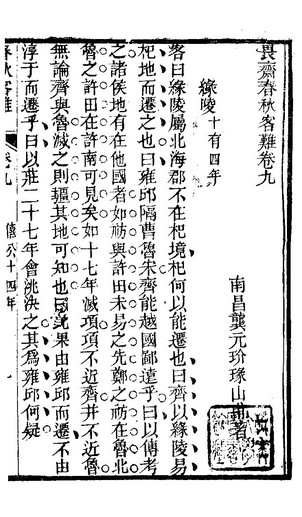 畏齋春秋客難卷九
南昌龔元玠瑑山甫著
緣陵十有四年
客曰緣陵屬北海郡不在杞境杞何以能遷也曰齊以緣陵易
杞地而遷之也曰雍邱隔曹魯朱齊能越國鄙遠乎曰以傳考
之諸侯地有在他國者如祊與許田未易之先鄭之祊在魯
魯之許田在許南可見矣如十七年滅項項不近齊并不近魯
無論齊與魯滅之則疆其地可知也曰杞果由雍邱而遷不由
淳于而遷乎曰以莊二十七年會洮決之其爲雍邱何疑
春秋客難
卷九
僖公十四年